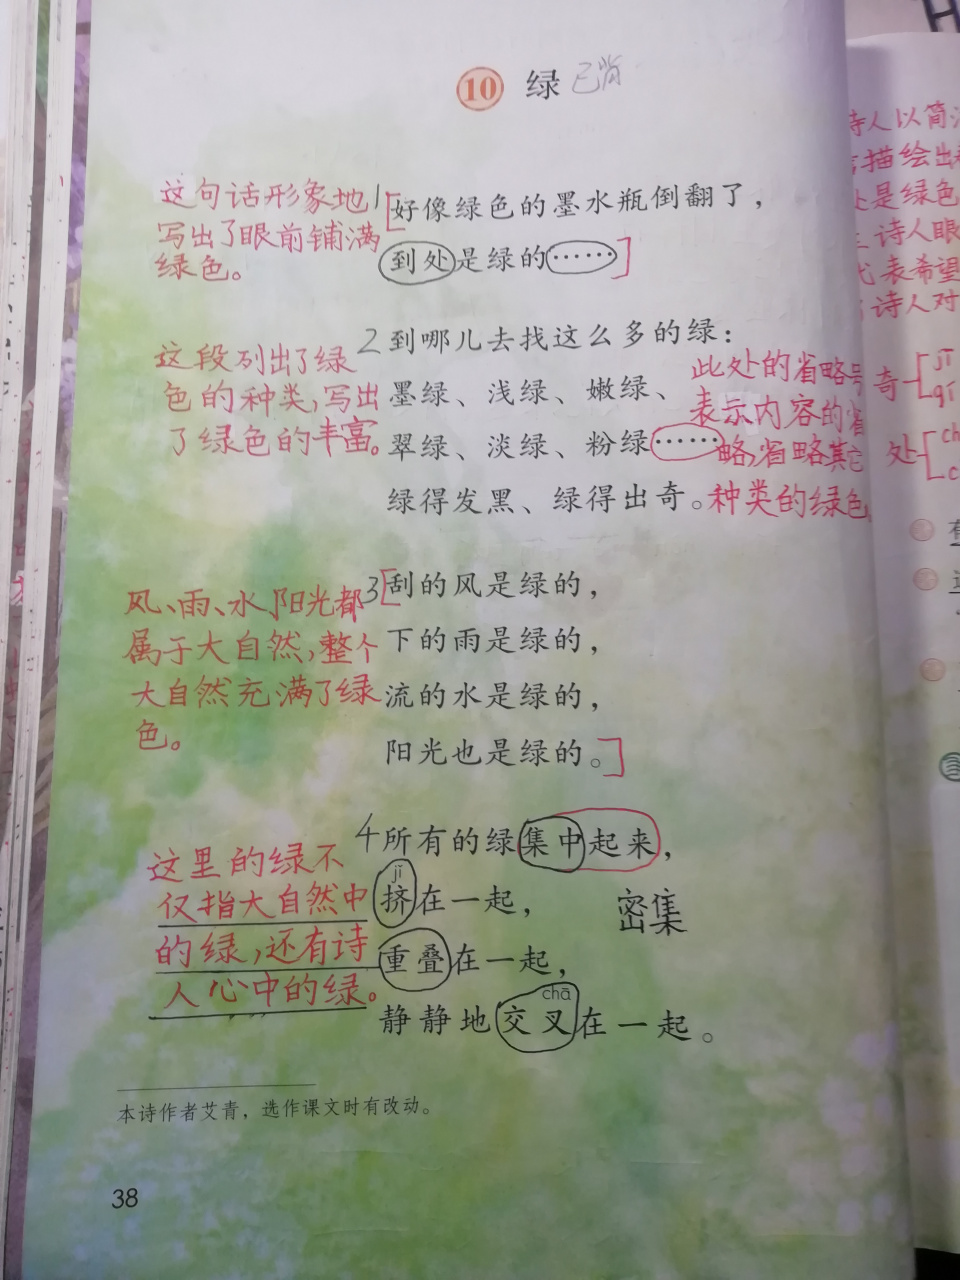 10 绿 已背
这句话形象地
写出了眼前铺满
绿色。
1 好像绿色的墨水瓶倒翻了，
到处是绿的……
这段列出了绿
色的种类，写出
了绿色的丰富。
2 到哪儿去找这么多的绿：
墨绿、浅绿、嫩绿、
翠绿、淡绿、粉绿……
绿得发黑、绿得出奇。
此处的省略号
表示内容的省
略，省略其它
种类的绿色
风、雨、水、阳光都
属于大自然，整个
大自然充满了绿
色。
3 刮的风是绿的，
下的雨是绿的，
流的水是绿的，
阳光也是绿的。
这里的绿不
仅指大自然中
的绿，还有诗
人心中的绿。
4 所有的绿集中起来，
jǐ
挤在一起，
密集
重叠在一起，
chā
静静地交叉在一起。
本诗作者艾青，选作课文时有改动。
38
诗人以简
描绘出
是绿色
诗人眼
代表希望
诗人对
奇 jī
qí
处 ch
c